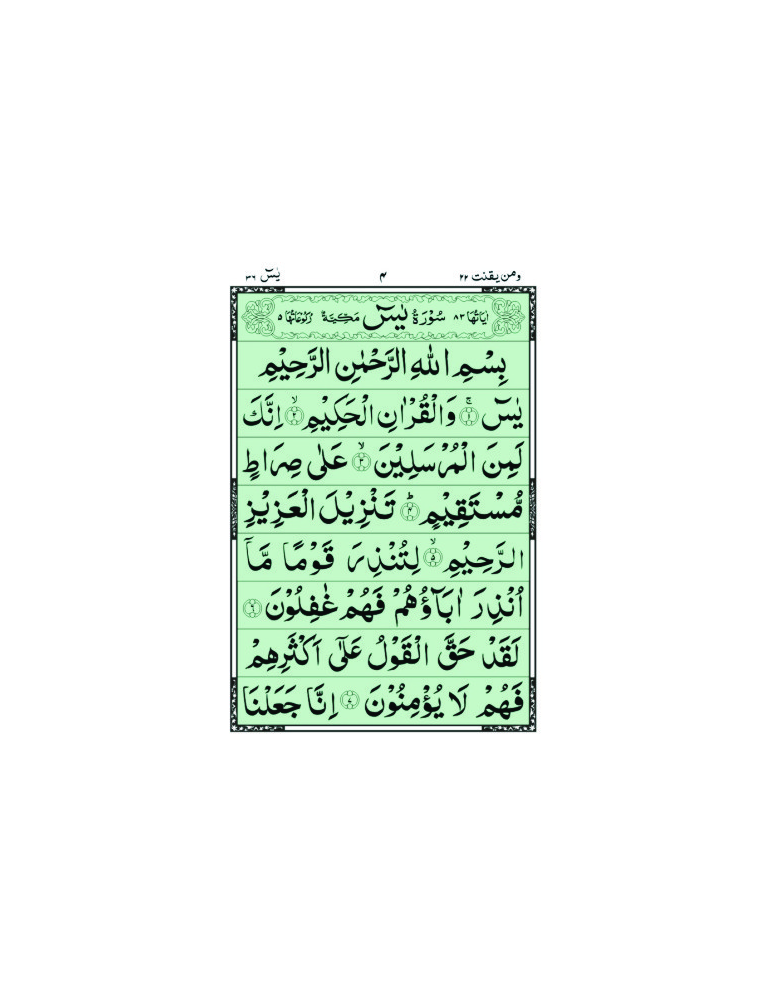 ومن یقنت ۲۲ ۴ یٰسٓ ۳۶
اٰیَاتُهَا ۸۳ سُوْرَةُ یٰسٓ مَكِّیَّةٌ رُكُوْعَاتُهَا ۵
بِسْمِ اللّٰهِ الرَّحْمٰنِ الرَّحِیْمِ
یٰسٓ ۚ﴿۱﴾ وَالْقُرْاٰنِ الْحَكِیْمِ ۙ﴿۲﴾ اِنَّكَ
لَمِنَ الْمُرْسَلِیْنَ ۙ﴿۳﴾ عَلٰی صِرَاطٍ
مُّسْتَقِیْمٍ ؕ﴿۴﴾ تَنْزِیْلَ الْعَزِیْزِ
الرَّحِیْمِ ۙ﴿۵﴾ لِتُنْذِرَ قَوْمًا مَّاۤ
اُنْذِرَ اٰبَآؤُهُمْ فَهُمْ غٰفِلُوْنَ ﴿۶﴾
لَقَدْ حَقَّ الْقَوْلُ عَلٰۤی اَكْثَرِهِمْ
فَهُمْ لَا یُؤْمِنُوْنَ ﴿۷﴾ اِنَّا جَعَلْنَا